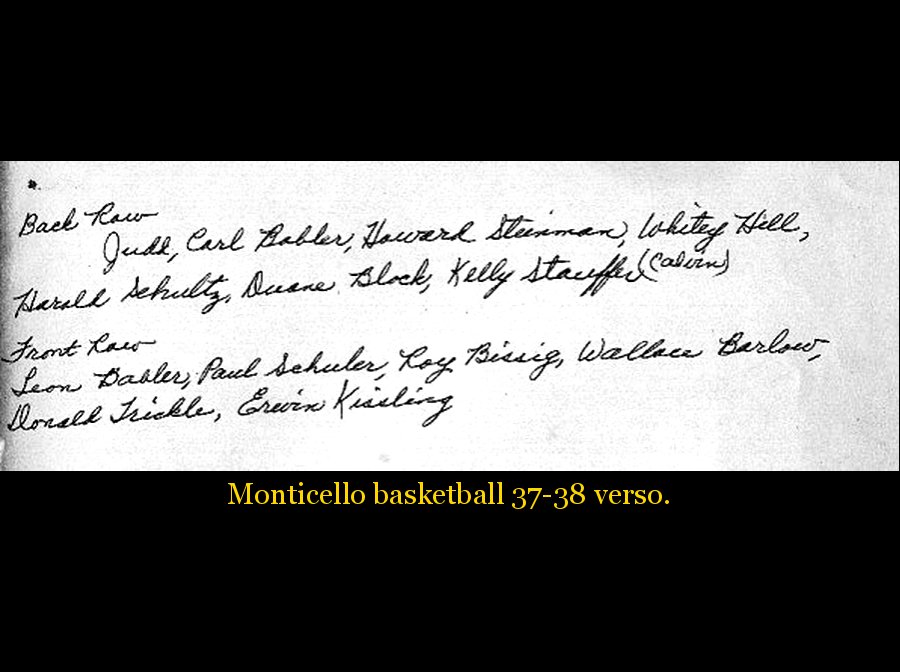 Back Row
Judd, Carl Babler, Howard Steinman, Whitey Hill,
Harold Schultz, Duane Block, Kelly Stauffer (Calvin)
Front Row
Leon Babler, Paul Schuler, Roy Bissig, Wallace Barlow,
Donald Trickle, Erwin Kissling
Monticello basketball 37-38 verso.